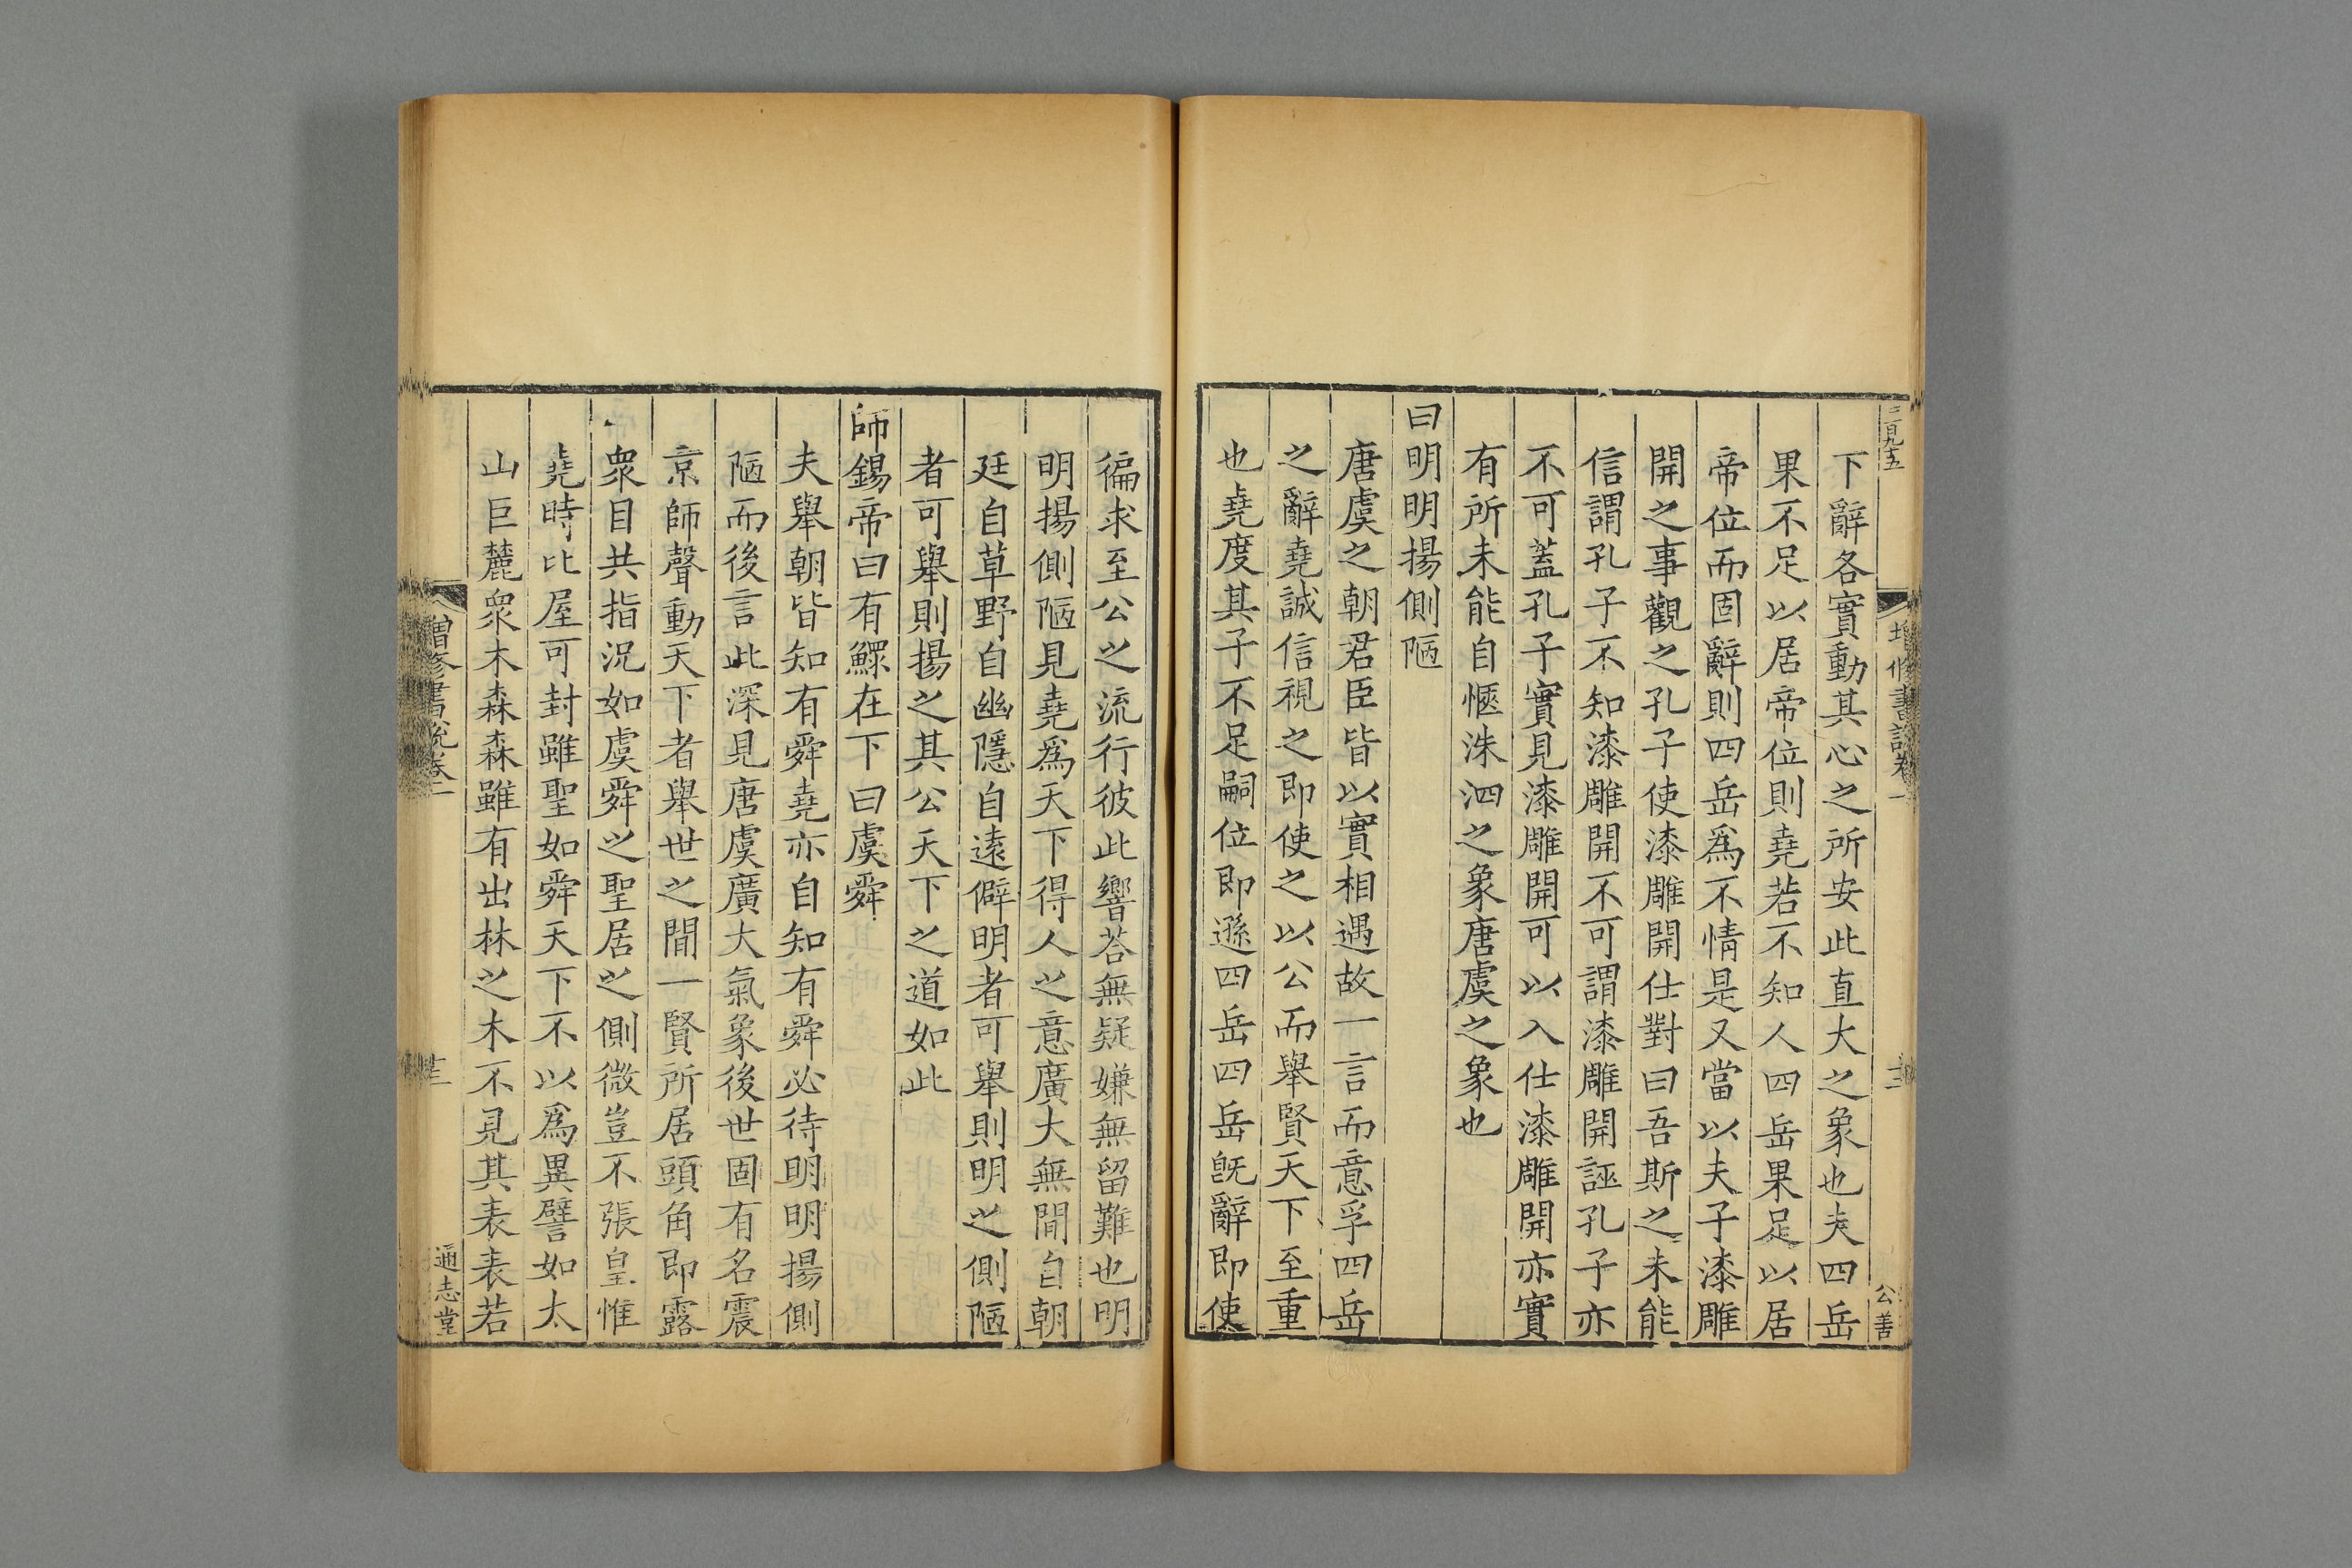 二百九十五
增修書說卷一
十二
公善
下辭各實動其心之所安此直大之象也夫四岳
果不足以居帝位則堯若不知人四岳果足以居
帝位而固辭則四岳爲不情是又當以夫子漆雕
開之事觀之孔子使漆雕開仕對曰吾斯之未能
信謂孔子不知漆雕開不可謂漆雕開誣孔子亦
不可蓋孔子實見漆雕開可以入仕漆雕開亦實
有所未能自愜洙泗之象唐虞之象也
曰明明揚側陋
唐虞之朝君臣皆以實相遇故一言而意孚四岳
之辭堯誠信視之即使之以公而舉賢天下至重
也堯度其子不足嗣位即遜四岳四岳旣辭即使
徧求至公之流行彼此響荅無疑嫌無留難也明
明揚側陋見堯爲天下得人之意廣大無間自朝
廷自草野自幽隱自遠僻明者可舉則明之側陋
者可舉則揚之其公天下之道如此
師錫帝曰有鰥在下曰虞舜
夫舉朝皆知有舜堯亦自知有舜必待明明揚側
陋而後言此深見唐虞廣大氣象後世固有名震
京師聲動天下者舉世之間一賢所居頭角即露
衆目共指況如虞舜之聖居之側微豈不張皇惟
堯時比屋可封雖聖如舜天下不以爲異譬如太
山巨麓衆木森森雖有出林之木不見其表表若
增修書說卷一
十二
通志堂